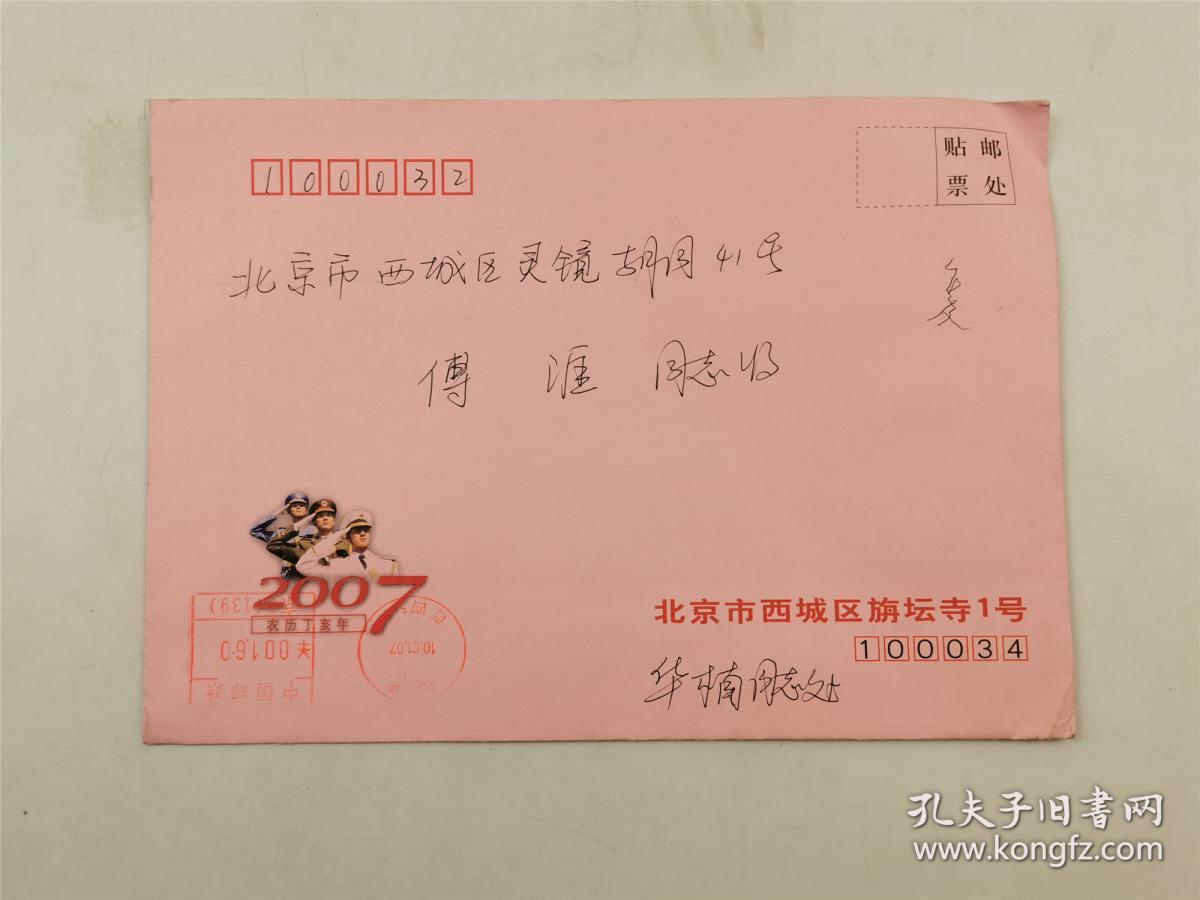 100032
贴邮
票处
北京市西城区灵镜胡同41号
傅 涯 同志收
2007
农历丁亥年
10.01.07
★0016.0
中国邮政
北京市西城区旃坛寺1号
100034
华楠同志处
孔夫子旧书网
www.kongfz.com